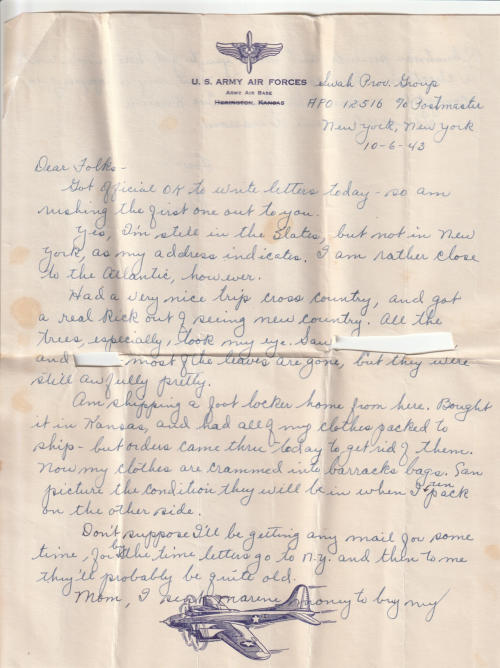 U. S. ARMY AIR FORCES
ARMY AIR BASE
HERINGTON, KANSAS
Swah Prov. Group
APO 12516 % Postmaster
New York, New York
10-6-43
Dear Folks -
Got official OK to write letters today - so am
rushing the first one out to you.
Yes, I'm still in the States, but not in New
York, as my address indicates. I am rather close
to the Atlantic, however.
Had a very nice trip cross country, and got
a real kick out of seeing new country. All the
trees, especially, took my eye. Saw
and most of the leaves are gone, but they were
still awfully pretty.
Am shipping a foot locker home from here. Bought
it in Kansas, and had all of my clothes packed to
ship - but orders came thru today to get rid of them.
Now my clothes are crammed into barracks bags. Can
picture the condition they will be in when I unpack
on the other side.
Don't suppose I'll be getting any mail for some
time, for by the time letters go to N.Y. and then to me
they'll probably be quite old.
Mom, I sent marine money to buy my